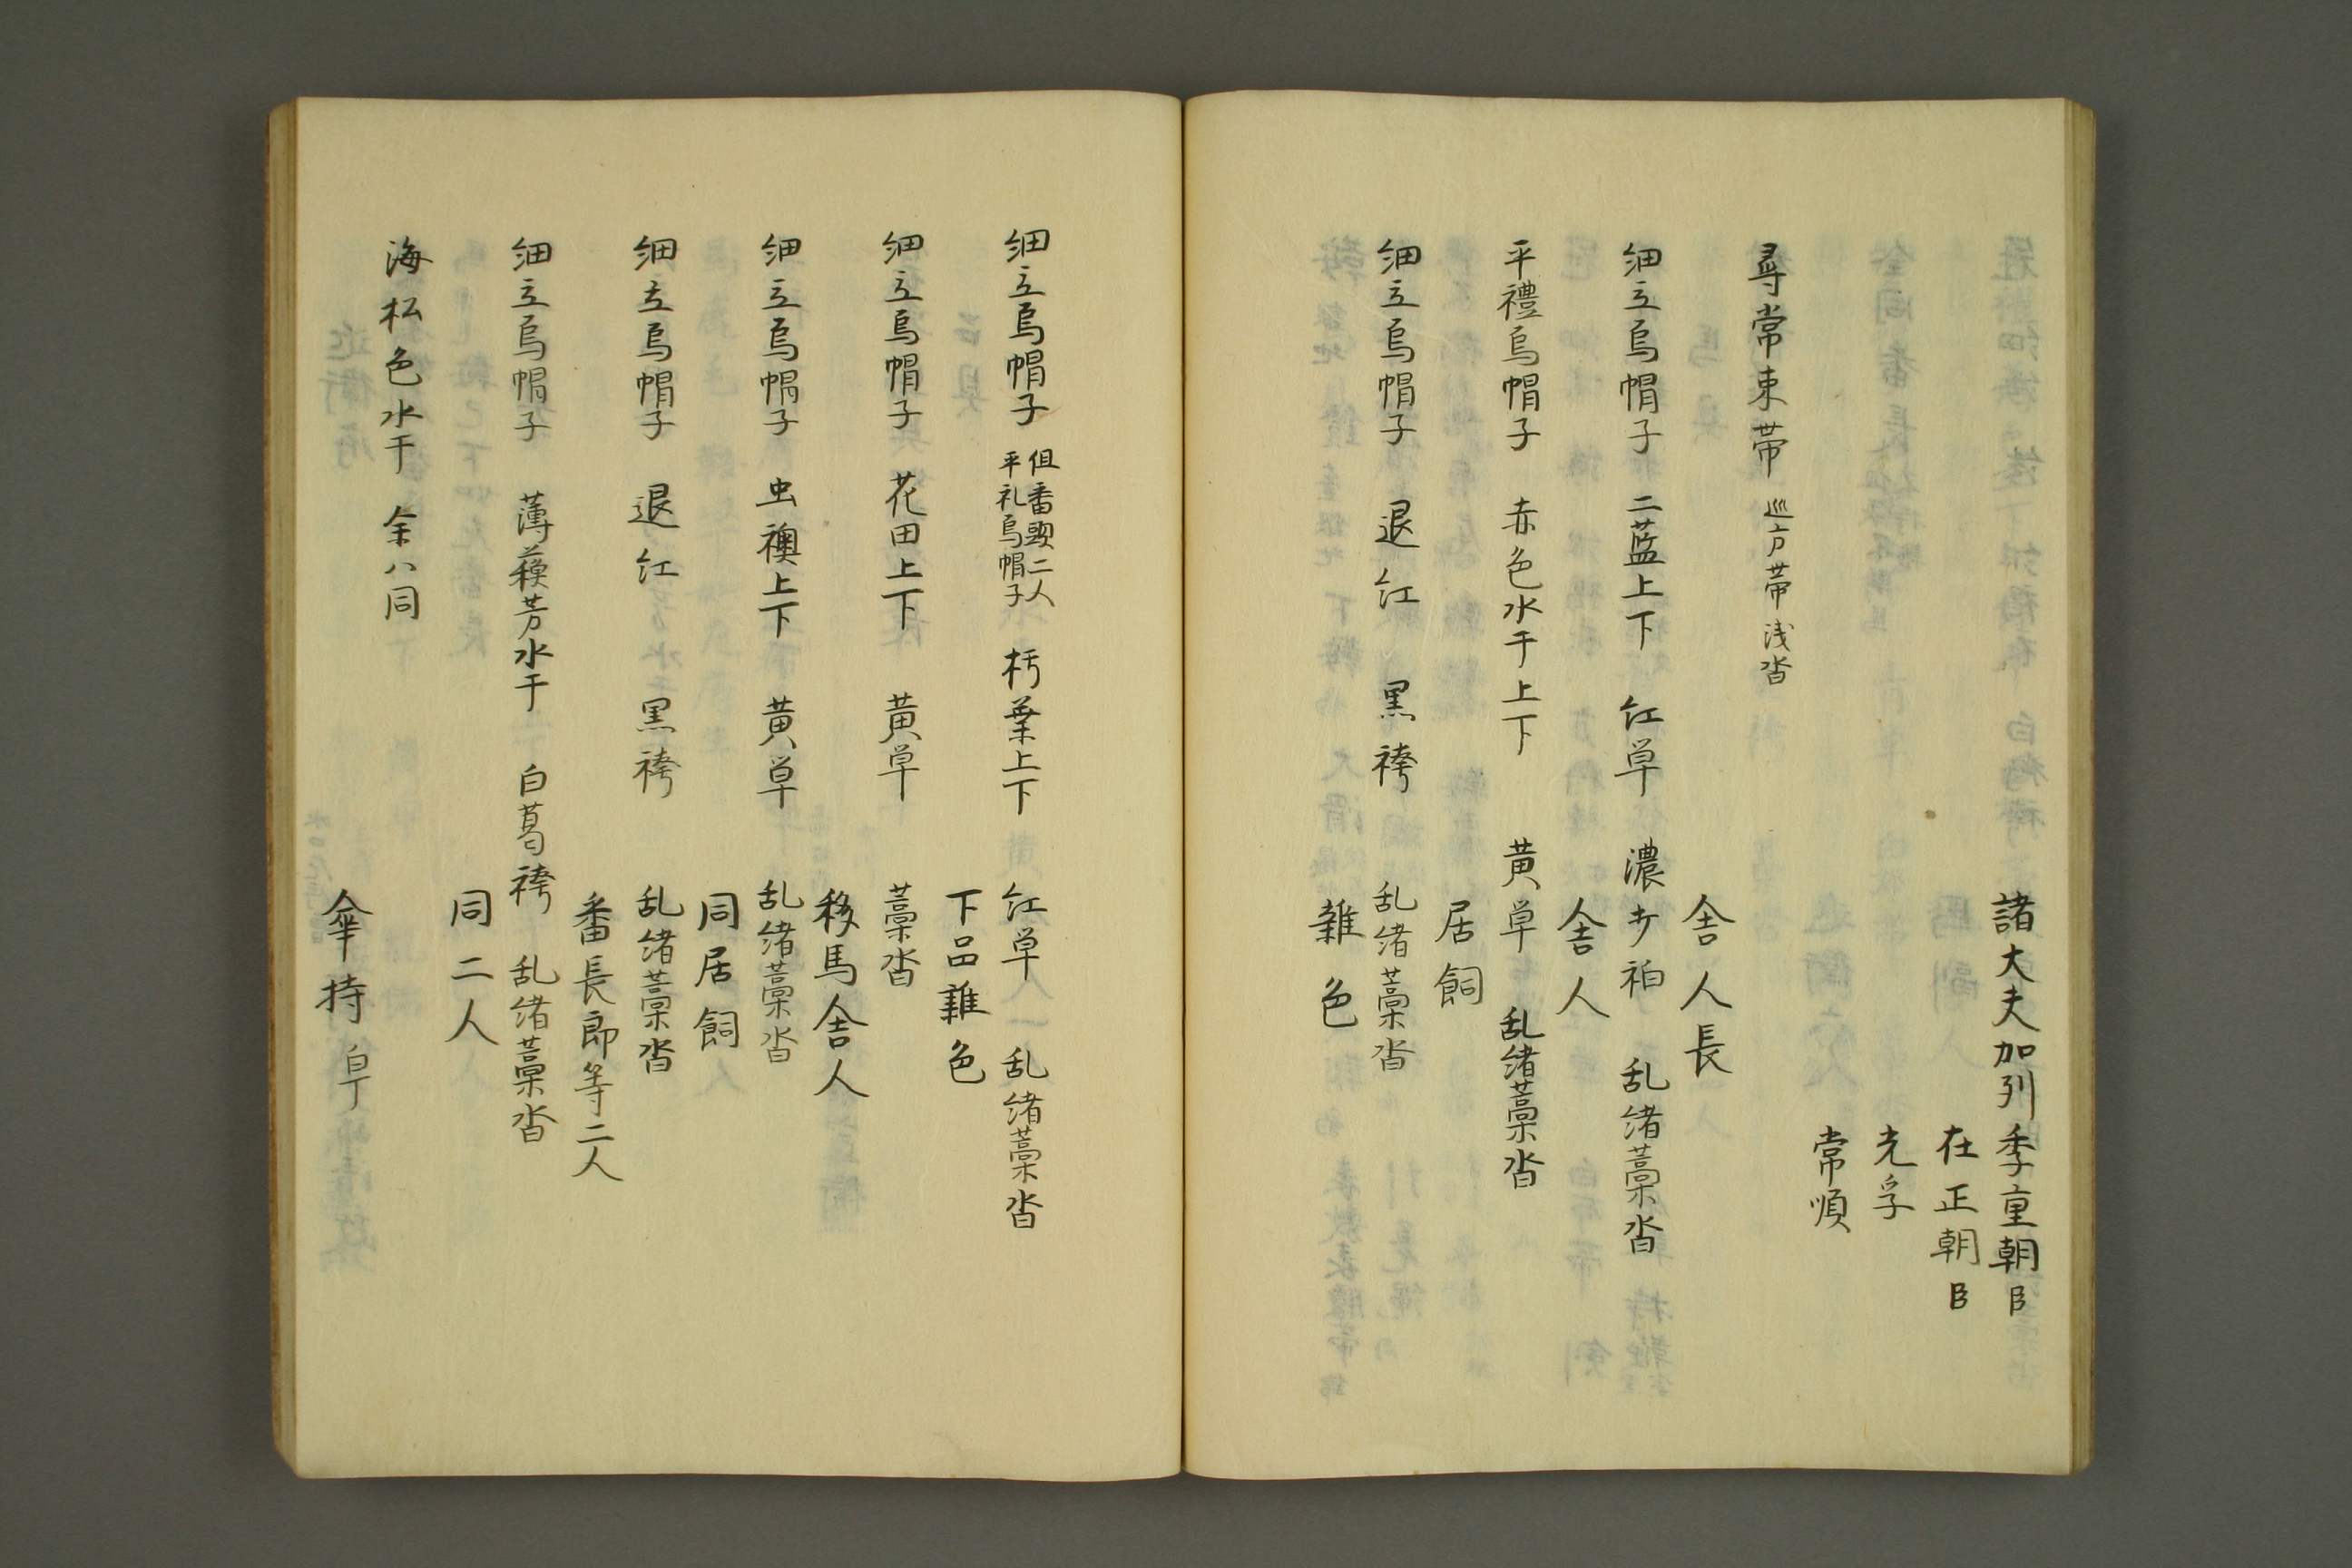 諸大夫加列季重朝臣
在正朝臣
光孚
常順
尋常束帯 巡方帯浅沓
舎人長
細立烏帽子 二藍上下 紅単 濃打衵 乱緒藁沓
舎人
平禮烏帽子 赤色水干上下 黄単 乱緒藁沓
居飼
細立烏帽子 退紅 黒袴 乱緒藁沓
雑色
細立烏帽子 但番頭二人
平礼烏帽子 朽葉上下 紅単 乱緒藁沓
下品雑色
細立烏帽子 花田上下 黄単 藁沓
移馬舎人
細立烏帽子 虫襖上下 黄単 乱緒藁沓
同居飼
細立烏帽子 退紅 黒袴 乱緒藁沓
番長郎等二人
細立烏帽子 薄蘇芳水干 白葛袴 乱緒藁沓
同二人
海松色水干 余ハ同
傘持